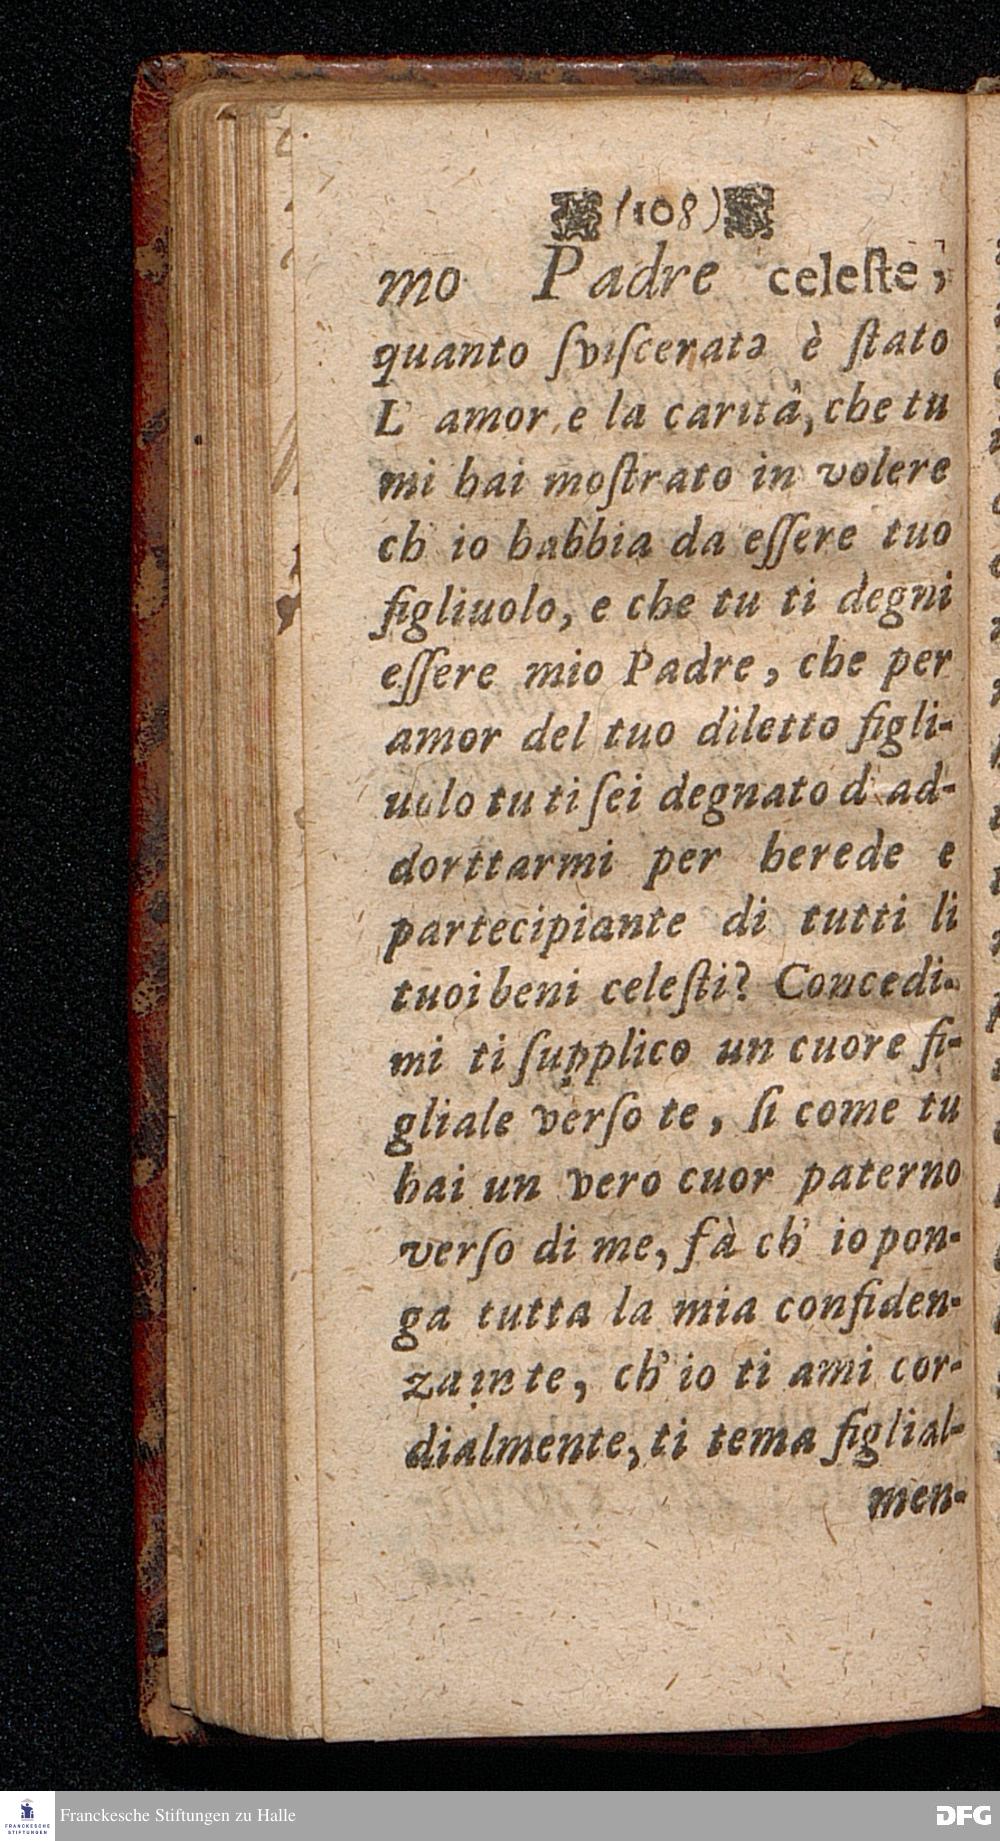 (108)
mo Padre celeſte,
quanto ſviſcerato è ſtato
L' amor, e la carità, che tu
mi hai moſtrato in volere
ch' io habbia da eſſere tuo
figliuolo, e che tu ti degni
eſſere mio Padre, che per
amor del tuo diletto figli-
uolo tu ti ſei degnato d' ad-
dorttarmi per herede e
partecipiante di tutti li
tuoi beni celeſti? Concedi-
mi ti ſupplico un cuore fi-
gliale verſo te, ſi come tu
hai un vero cuor paterno
verſo di me, fà ch' io pon-
ga tutta la mia confiden-
za in te, ch' io ti ami cor-
dialmente, ti tema figlial-
men-
Franckesche Stiftungen zu Halle
FRANCKESCHE
STIFTUNGEN
DFG